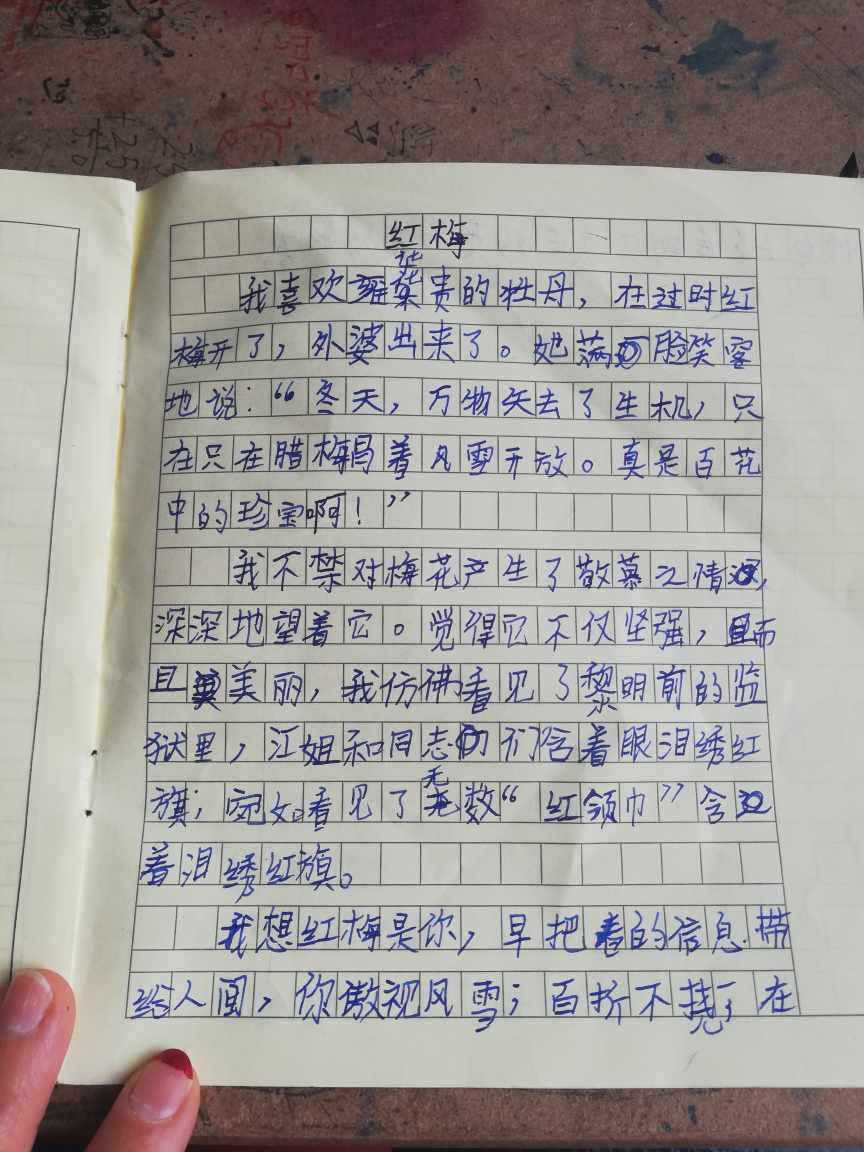 红梅
我喜欢雍华贵的牡丹，在过时红
梅开了，外婆出来了。她满脸笑容
地说：“冬天，万物失去了生机，只
在只在腊梅冒着风雪开放。真是百花
中的珍宝啊！”
我不禁对梅花产生了敬慕之情，
深深地望着它。觉得它不仅坚强，而
且美丽，我仿佛看见了黎明前的监
狱里，江姐和同志们含着眼泪绣红
旗；宛如看见了无数“红领巾”含
着泪绣红旗。
我想红梅是你，早把春的信息带
给人间，你傲视风雪；百折不挠了在